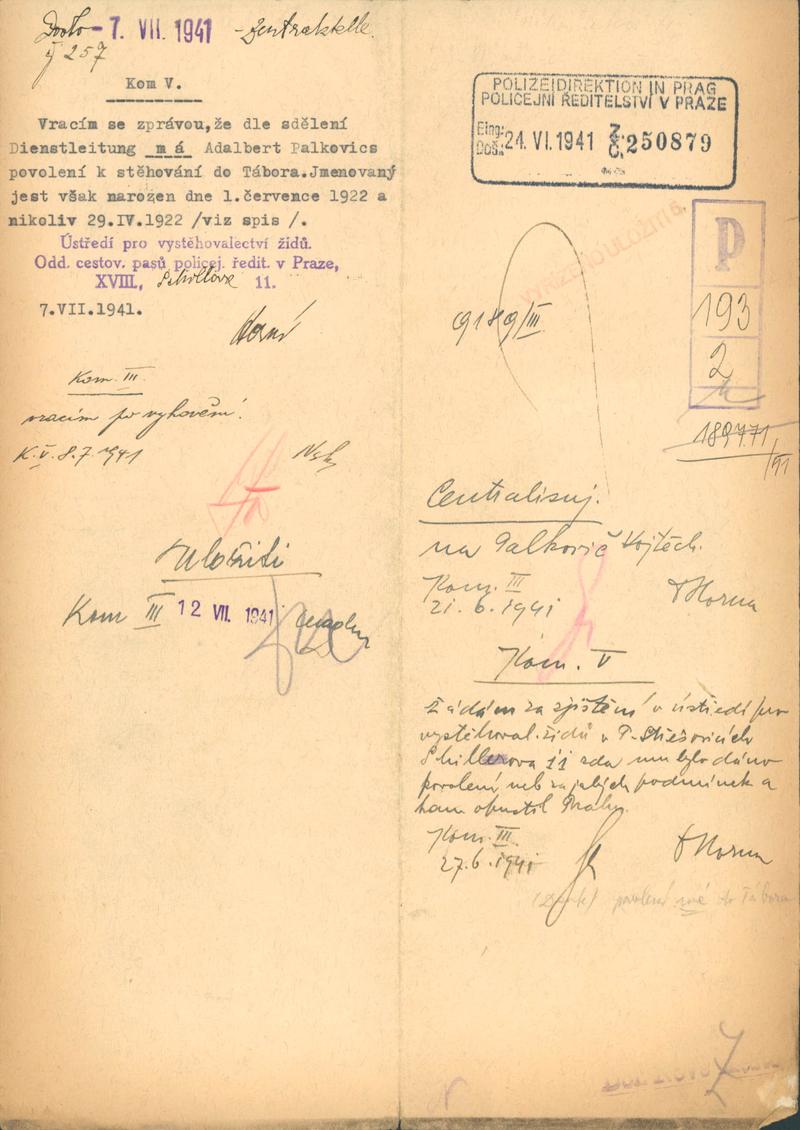 Došlo - 7. VII. 1941 - Zentralstelle.
257
Kom V.
Vracím se zprávou, že dle sdělení
Dienstleitung m á Adalbert Palkovics
povolení k stěhování do Tábora. Jmenovaný
jest však narozen dne 1. července 1922 a
nikoliv 29.IV.1922 /viz spis /.
Ústředí pro vystěhovalectví židů.
Odd. cestov. pasů policej. ředit. v Praze,
XVIII, Schillova 11.
7.VII.1941.
Kom. III.
vracím po vyhovění.
K. V. 8.7.1941
Uložiti
Kom III 12 VII. 1941
POLIZEIDIREKTION IN PRAG
POLICEJNÍ ŘEDITELSTVÍ V PRAZE
Eing.: Doš.: 24. VI. 1941 Z. Č. 250879
VYŘÍZENO ULOŽITI
P
193
2
9189/III
189771
/41
Centralisuj.
na Palkovič Vojtěch.
Kom. III
21.6.1941 Horna
Kom. V
Žádám za zjištění v ústředí pro
vystěhoval. židů v P.-Střešovicích
Schillerova 11 zda mu bylo dáno
povolení neb za jakých podmínek a
kam opustil Prahu.
Kom. III.
27.6.1941 Horna
povolení má do Tábora